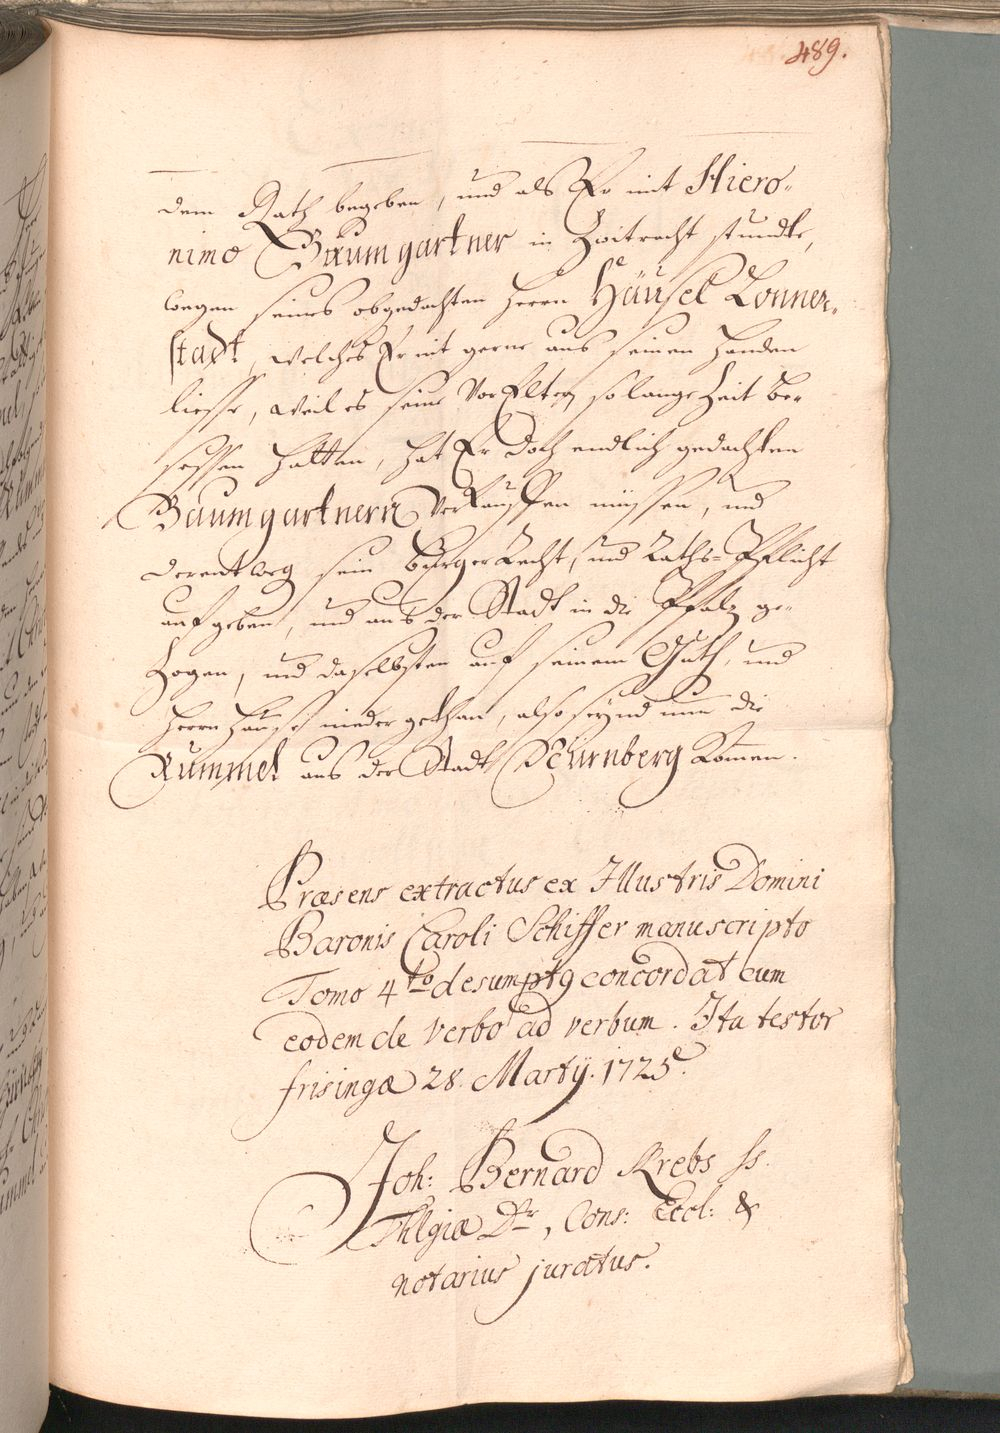 489.
dem Rath begeben, und als Er mit Hiero-
nimo Baumgartner in Zwitracht stundte,
wegen seines obgedachten Herrn Häusel Lonner-
stadt, welches Er nit gerne aus seinen Handen
liesse, weil es seine VorEltern so lange Zeit be-
sessen hatten, hat Er doch endlich gedachten
Baumgartnern verkauffen müssen, und
derentweg sein BurgerRecht, und Raths-Pflicht
aufgeben, und aus der Stadt in die Pfalz ge-
zogen, und daselbsten auf seinem Guth, und
Herrn Hause nieder gethan, also seynd nun die
Rummel aus der Stadt Nürnberg komen.
Præsens extractus ex Illustris Domini
Baronis Caroli Schiffer manuscripto
Tomo 4to desumpt9 concordat cum
eodem de verbo ad verbum. Ita testor
frisingæ 28. Martÿ. 1725.
Joh: Bernard Krebs ss.
Thlgiæ Dr, Cons: Eccl: &
notarius juratus.